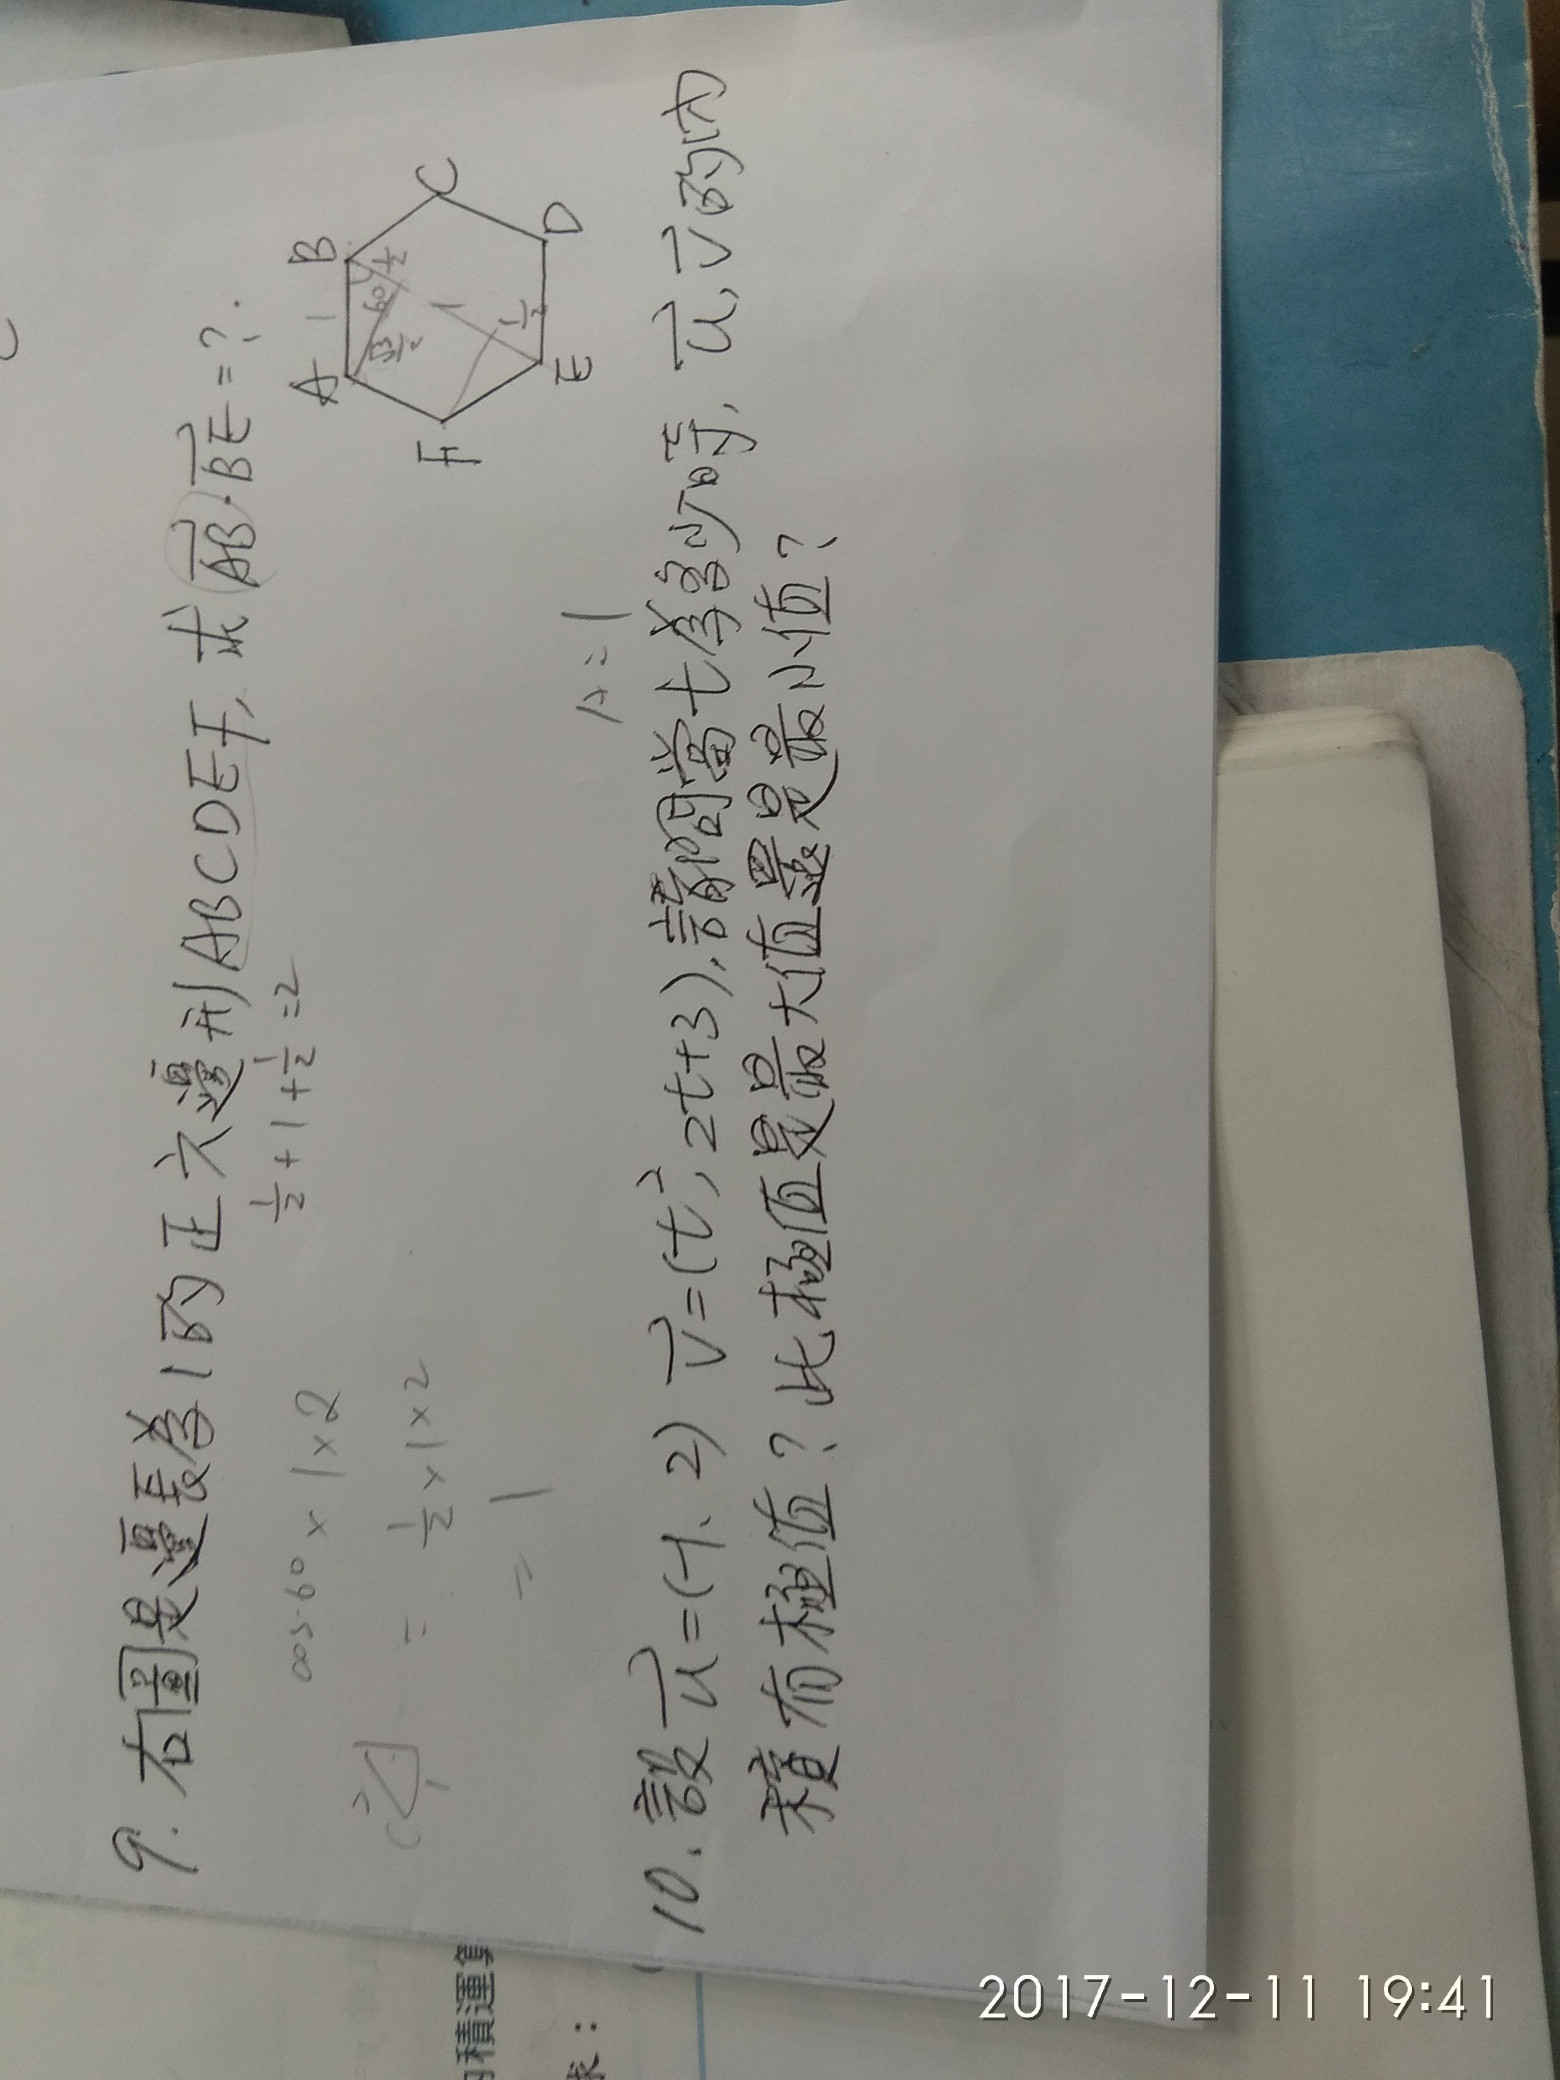 9. 右圖是邊長為1的正六邊形ABCDEF, 求 AB·BE=?.
1/2+1+1/2=2
cos60×1×2
=1/2×1×2
=1
A
1
B
60
1/2
√3/2
C
F
1
1/2
E
D
1×=1
10. 設u=(-1, 2) v=(t², 2t+3), 請問當t為多少時, u, v的內
積有極值? 此極值是最大值還是最小值?
積運算
求:
2017-12-11 19:41